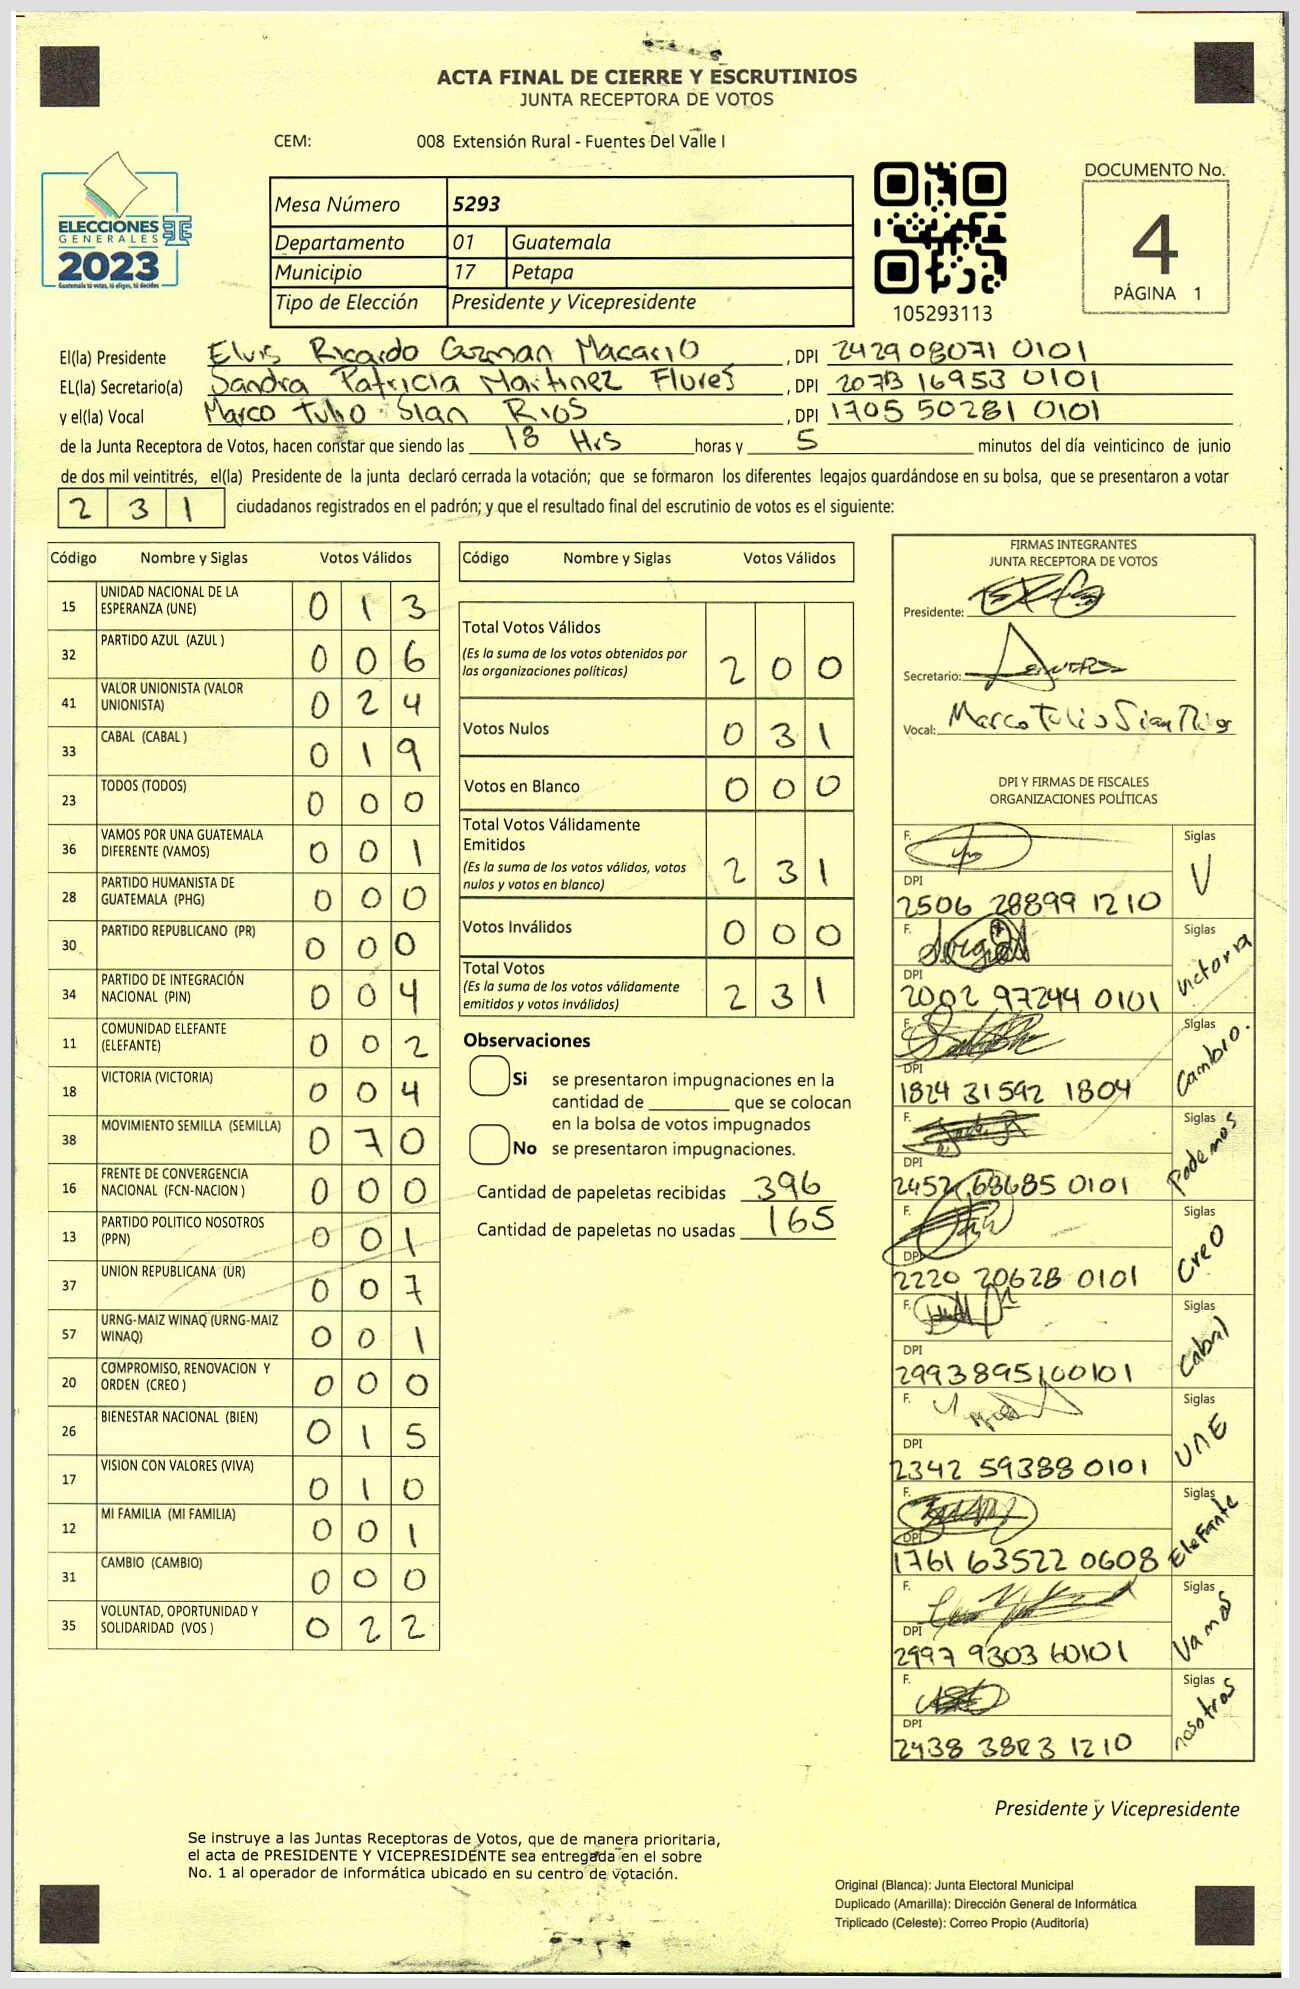 ACTA FINAL DE CIERRE Y ESCRUTINIOS
JUNTA RECEPTORA DE VOTOS
CEM: 008 Extensión Rural - Fuentes Del Valle I
ELECCIONES
GENERALES
2023
Guatemala tú votas, tú eliges, tú decides
Mesa Número 5293
Departamento 01 Guatemala
Municipio 17 Petapa
Tipo de Elección Presidente y Vicepresidente
105293113
DOCUMENTO No.
4
PÁGINA 1
El(la) Presidente Elvis Ricardo Guzman Macario, DPI 2429 08071 0101
EL(la) Secretario(a) Sandra Patricia Martinez Flores, DPI 2073 16953 0101
y el(la) Vocal Marco Tulio Sian Rios, DPI 1705 50281 0101
de la Junta Receptora de Votos, hacen constar que siendo las 18 Hrs horas y 5 minutos del día veinticinco de junio
de dos mil veintitrés, el(la) Presidente de la junta declaró cerrada la votación; que se formaron los diferentes legajos guardándose en su bolsa, que se presentaron a votar
231 ciudadanos registrados en el padrón; y que el resultado final del escrutinio de votos es el siguiente:
Código Nombre y Siglas Votos Válidos
15 UNIDAD NACIONAL DE LA ESPERANZA (UNE) 0 1 3
32 PARTIDO AZUL (AZUL ) 0 0 6
41 VALOR UNIONISTA (VALOR UNIONISTA) 0 2 4
33 CABAL (CABAL ) 0 1 9
23 TODOS (TODOS) 0 0 0
36 VAMOS POR UNA GUATEMALA DIFERENTE (VAMOS) 0 0 1
28 PARTIDO HUMANISTA DE GUATEMALA (PHG) 0 0 0
30 PARTIDO REPUBLICANO (PR) 0 0 0
34 PARTIDO DE INTEGRACIÓN NACIONAL (PIN) 0 0 4
11 COMUNIDAD ELEFANTE (ELEFANTE) 0 0 2
18 VICTORIA (VICTORIA) 0 0 4
38 MOVIMIENTO SEMILLA (SEMILLA) 0 7 0
16 FRENTE DE CONVERGENCIA NACIONAL (FCN-NACION ) 0 0 0
13 PARTIDO POLITICO NOSOTROS (PPN) 0 0 1
37 UNION REPUBLICANA (UR) 0 0 7
57 URNG-MAIZ WINAQ (URNG-MAIZ WINAQ) 0 0 1
20 COMPROMISO, RENOVACION Y ORDEN (CREO ) 0 0 0
26 BIENESTAR NACIONAL (BIEN) 0 1 5
17 VISION CON VALORES (VIVA) 0 1 0
12 MI FAMILIA (MI FAMILIA) 0 0 1
31 CAMBIO (CAMBIO) 0 0 0
35 VOLUNTAD, OPORTUNIDAD Y SOLIDARIDAD (VOS ) 0 2 2
Código Nombre y Siglas Votos Válidos
Total Votos Válidos
(Es la suma de los votos obtenidos por las organizaciones políticas) 2 0 0
Votos Nulos 0 3 1
Votos en Blanco 0 0 0
Total Votos Válidamente Emitidos
(Es la suma de los votos válidos, votos nulos y votos en blanco) 2 3 1
Votos Inválidos 0 0 0
Total Votos
(Es la suma de los votos válidamente emitidos y votos inválidos) 2 3 1
Observaciones
Si se presentaron impugnaciones en la
cantidad de ________ que se colocan
en la bolsa de votos impugnados
No se presentaron impugnaciones.
Cantidad de papeletas recibidas 396
Cantidad de papeletas no usadas 165
FIRMAS INTEGRANTES
JUNTA RECEPTORA DE VOTOS
Presidente:
Secretario:
Vocal: Marco Tulio Sian Rios
DPI Y FIRMAS DE FISCALES
ORGANIZACIONES POLÍTICAS
F. Siglas V
DPI 2506 28899 1210
F. Siglas Victoria
DPI 2002 97244 0101
F. Siglas Cambio.
DPI 1824 31592 1804
F. Siglas Podemos
DPI 2452 68685 0101
F. Siglas CreO
DPI 2220 20628 0101
F. Siglas Cabal
DPI 2993895100101
F. Siglas UNE
DPI 2342 59388 0101
F. Siglas Elefante
DPI 1761 63522 0608
F. Siglas Vamos
DPI 2997 9303 60101
F. Siglas nosotros
DPI 2438 1210
Presidente y Vicepresidente
Se instruye a las Juntas Receptoras de Votos, que de manera prioritaria,
el acta de PRESIDENTE Y VICEPRESIDENTE sea entregada en el sobre
No. 1 al operador de informática ubicado en su centro de votación.
Original (Blanca): Junta Electoral Municipal
Duplicado (Amarilla): Dirección General de Informática
Triplicado (Celeste): Correo Propio (Auditoría)